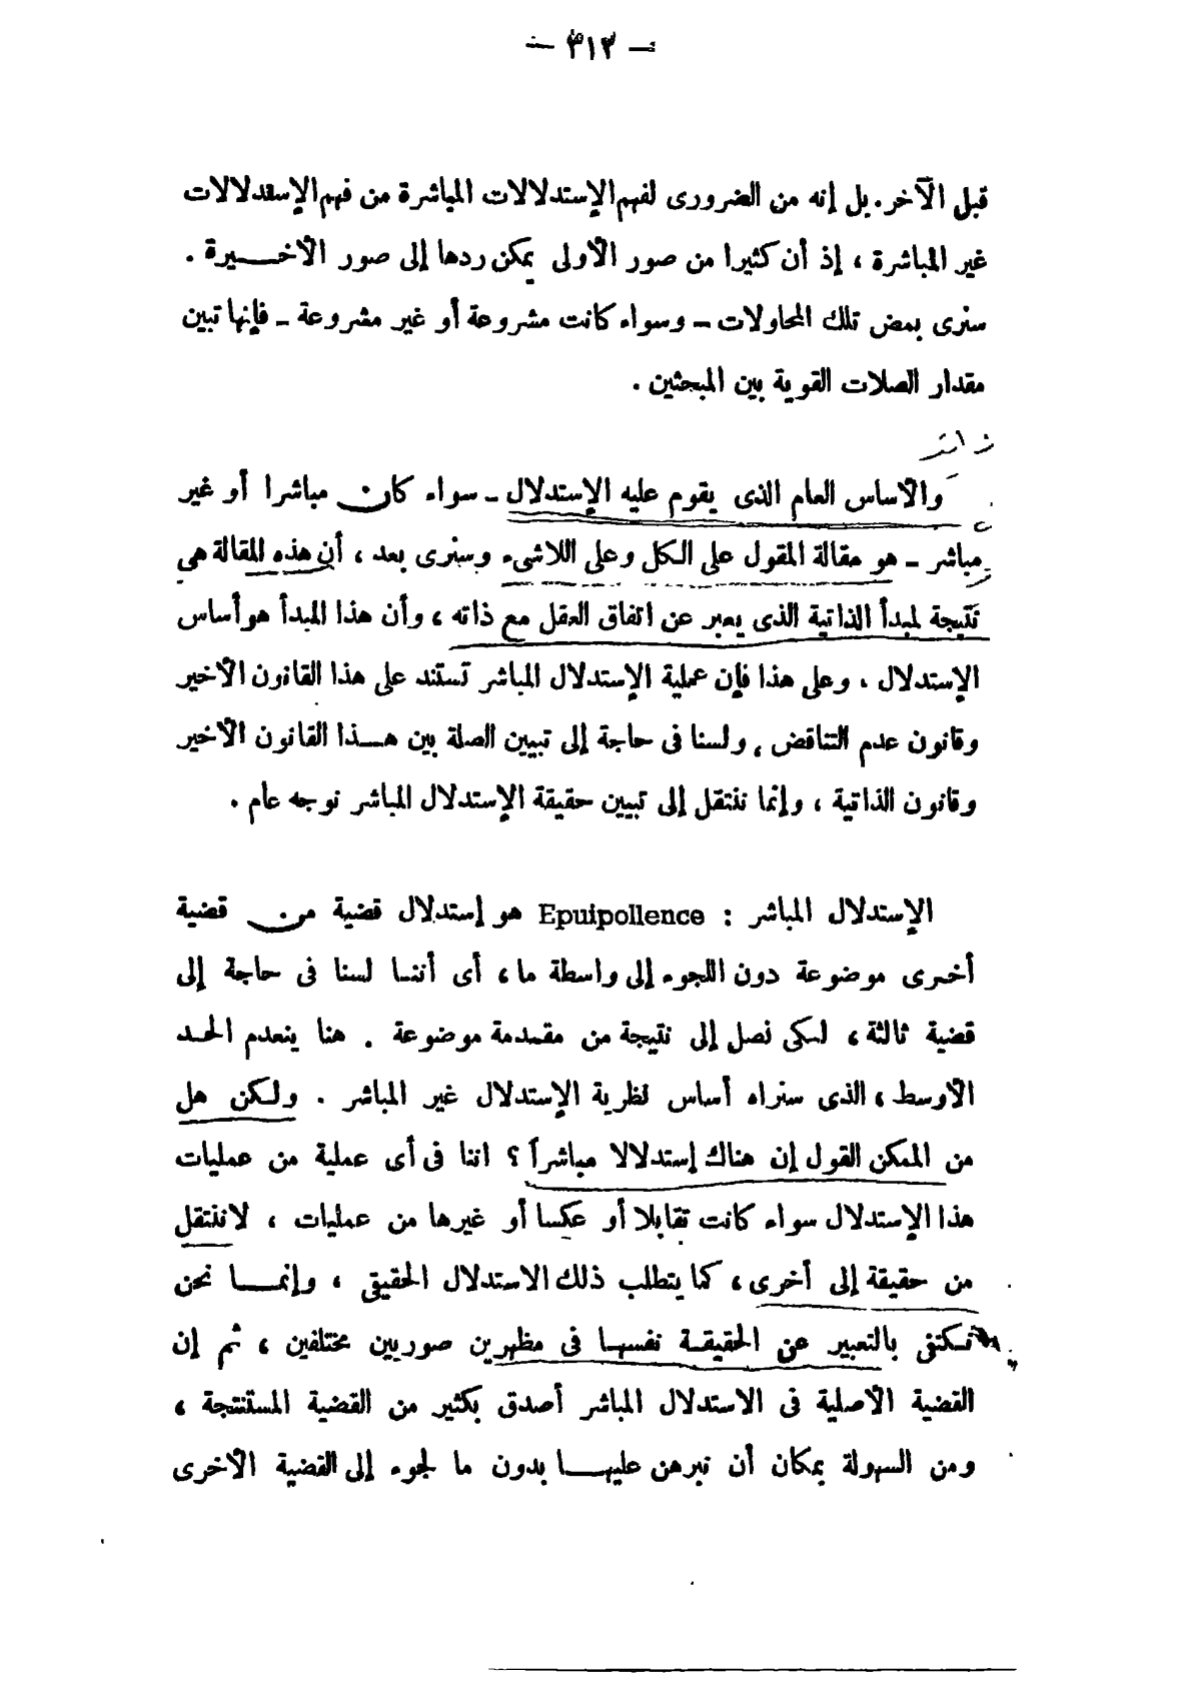 — ٣١٣ —
قبل الآخر. بل إنه من الضرورى لفهم الإستدلالات المباشرة من فهم الإستدلالات
غير المباشرة ، إذ أن كثيرا من صور الأولى يمكن ردها إلى صور الأخـــيرة .
سنرى بعض تلك المحاولات — وسواء كانت مشروعة أو غير مشروعة — فإنها تبين
مقدار الصلات القوية بين المبحثين .
والأساس العام الذى يقوم عليه الإستدلال — سواء كان مباشرا أو غير
مباشر — هو مقالة المقول على الكل وعلى اللاشىء وسنرى بعد ، أن هذه المقالة هى
نتيجة لمبدأ الذاتية الذى يعبر عن اتفاق العقل مع ذاته ، وأن هذا المبدأ هو أساس
الإستدلال ، وعلى هذا فإن عملية الإستدلال المباشر تستند على هذا القانون الأخير
وقانون عدم التناقض ، ولسنا فى حاجة إلى تبيين الصلة بين هــذا القانون الأخير
وقانون الذاتية ، وإنما ننتقل إلى تبيين حقيقة الإستدلال المباشر نوجه عام .
الإستدلال المباشر : Epuipollence هو إستدلال قضية من قضية
أخرى موضوعة دون اللجوء إلى واسطة ما ، أى أننا لسنا فى حاجة إلى
قضية ثالثة ، لكى نصل إلى نتيجة من مقدمة موضوعة . هنا ينعدم الحد
الأوسط ، الذى سنراه أساس نظرية الإستدلال غير المباشر . ولكن هل
من الممكن القول إن هناك إستدلالا مباشراً ؟ اننا فى أى عملية من عمليات
هذا الإستدلال سواء كانت تقابلا أو عكسا أو غيرها من عمليات ، لاننتقل
من حقيقة إلى أخرى ، كما يتطلب ذلك الاستدلال الحقيقى ، وإنمــا نحن
نكتفى بالتعبير عن الحقيقة نفسها فى مظهرين صوريين مختلفين ، ثم إن
القضية الأصلية فى الاستدلال المباشر أصدق بكثير من القضية المستنتجة ،
ومن السهولة بمكان أن نبرهن عليهــا بدون ما لجوء إلى القضية الأخرى